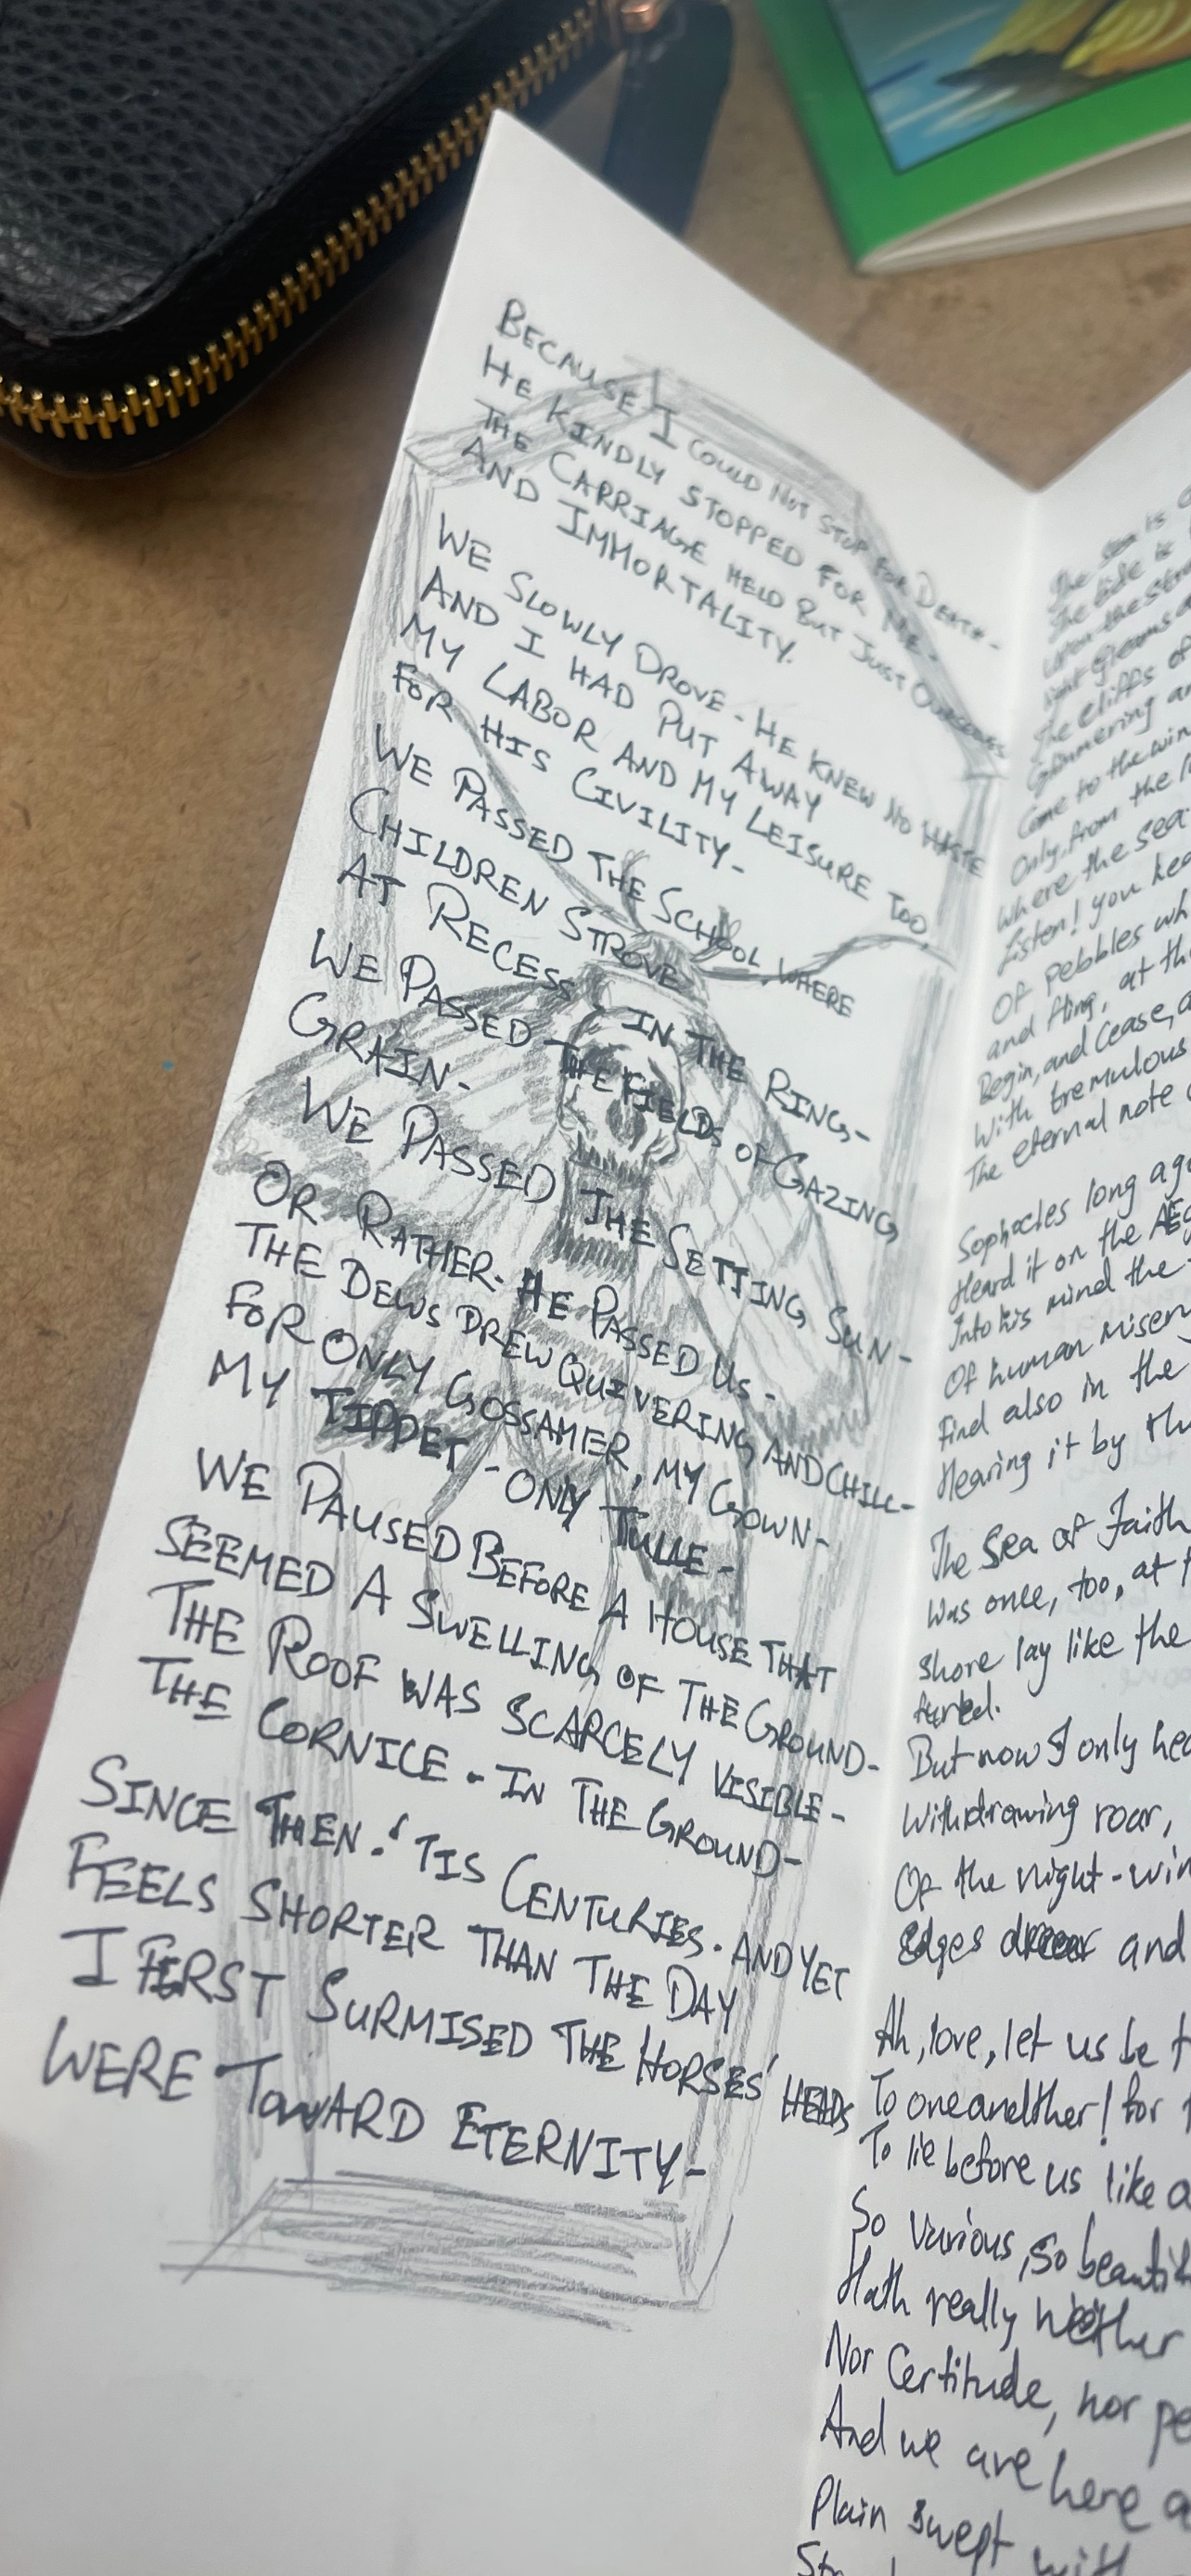 BECAUSE I COULD NOT STOP FOR DEATH-
HE KINDLY STOPPED FOR ME-
THE CARRIAGE HELD BUT JUST OURSELVES
AND IMMORTALITY.
WE SLOWLY DROVE - HE KNEW NO HASTE
AND I HAD PUT AWAY
MY LABOR AND MY LEISURE TOO,
FOR HIS CIVILITY-
WE PASSED THE SCHOOL, WHERE
CHILDREN STROVE
AT RECESS, IN THE RING-
WE PASSED THE FIELDS OF GAZING
GRAIN-
WE PASSED THE SETTING SUN-
OR RATHER- HE PASSED US-
THE DEWS DREW QUIVERING AND CHILL-
FOR ONLY GOSSAMER, MY GOWN-
MY TIPPET - ONLY TULLE-
WE PAUSED BEFORE A HOUSE THAT
SEEMED A SWELLING OF THE GROUND-
THE ROOF WAS SCARCELY VISIBLE-
THE CORNICE - IN THE GROUND-
SINCE THEN - 'TIS CENTURIES - AND YET
FEELS SHORTER THAN THE DAY
I FIRST SURMISED THE HORSES' HEADS
WERE TOWARD ETERNITY-
The sea is
The tide is
Upon the
light gleams
The cliffs of
Glimmering
Come to the
Only, from the
Where the sea
Listen! you
Of pebbles
and fling, at
Begin, and cease,
With tremulous
The eternal note
Sophocles long
Heard it on the
Into his mind the
Of human
Find also in the
Hearing it by
The Sea of Faith
Was once, too, at
shore lay like the
furled.
But now I only
Withdrawing roar,
Of the night-
edges drear and
Ah, love, let us be
To one another! for
To lie before us like a
So various, so
Hath really neither
Nor Certitude, nor
And we are here
Plain swept with